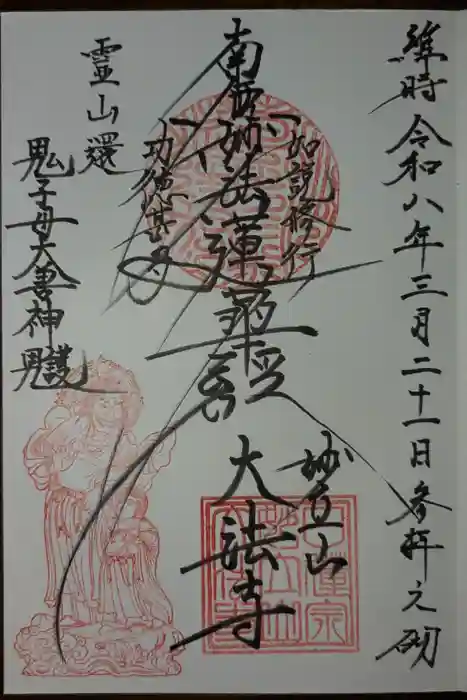 維時令和八年三月二十一日参拝之砌
如説修行
南無妙法蓮華経
功徳甚多
妙立山
大法寺
霊山還
鬼子母大善神
守護